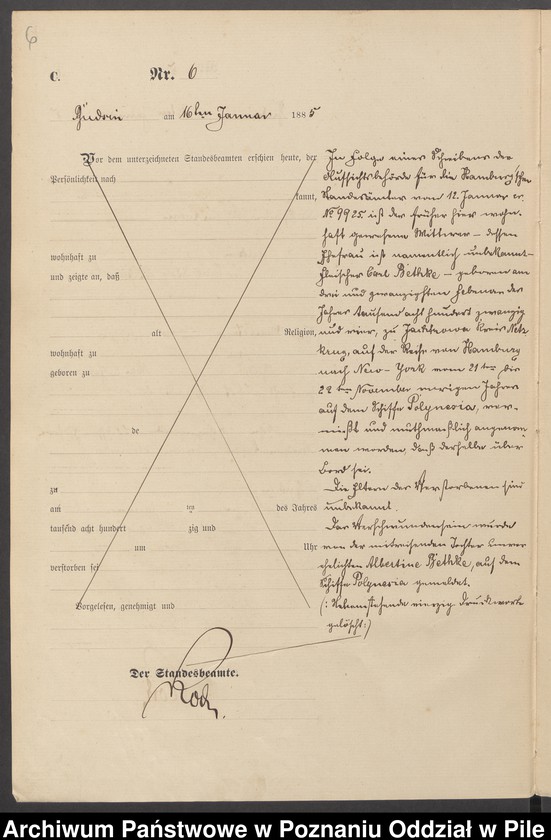 6
C.
Nr. 6
am 16ten Januar 1885
Vor dem unterzeichneten Standesbeamten erschien heute, der
Persönlichkeit nach
kannt,
wohnhaft zu
und zeigte an, daß
alt
Religion,
wohnhaft zu
geboren zu
de
zu
am ten des Jahres
tausend acht hundert zig und
um Uhr
verstorben sei
Vorgelesen, genehmigt und
Der Standesbeamte.
In Folge eines Schreibens der
Aufsichtsbehörde für die Hamburg'schen
Standesämter vom 12. Januar cr.
№ 9925 ist der früher hier wohn-
haft gewesene Wittwer – dessen
Ehefrau ist namentlich unbekannt –
Fleischer Carl Bethke – geboren am
drei und zwanzigsten Februar des
Jahres tausend acht hundert zwanzig
und vier, zu Kreis
auf der Reise von Hamburg
nach New-York vom 21ten bis
22ten November vorigen Jahres
auf dem Schiffe Polynesia, ver-
mißt und muthmaßlich angenom-
men worden daß derselbe über
Bord sei.
Die Eltern des Verstorbenen sind
unbekannt.
Das Verschwundensein wurde
von der mitreisenden Tochter unver-
ehelichten Albertine Bethke, auf dem
Schiffe Polynesia gemeldet.
(: Nebenstehende vierzig Druckworte
gelöscht :)
Archiwum Państwowe w Poznaniu Oddział w Pile